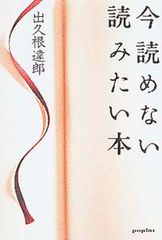 今読めない
読みたい本
出久根達郎
poplar